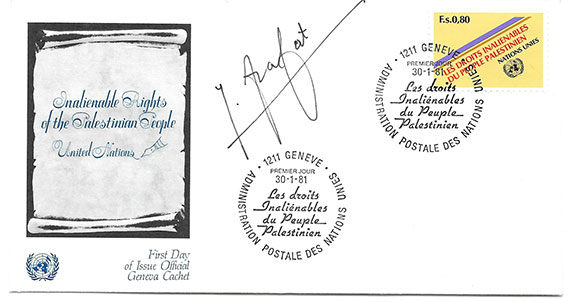 Inalienable Rights
of the Palestinian People
United Nations
First Day
of Issue Official
Geneva Cachet
Y. Arafat
F.s. 0,80
LES DROITS INALIENABLES
DU PEUPLE PALESTINIEN
NATIONS UNIES
1211 GENEVE
PREMIER JOUR
30-1-81
Les droits
Inaliénables
du Peuple
Palestinien
ADMINISTRATION POSTALE DES NATIONS UNIES
1211 GENEVE
PREMIER JOUR
30-1-81
Les droits
Inaliénables
du Peuple
Palestinien
ADMINISTRATION POSTALE DES NATIONS UNIES